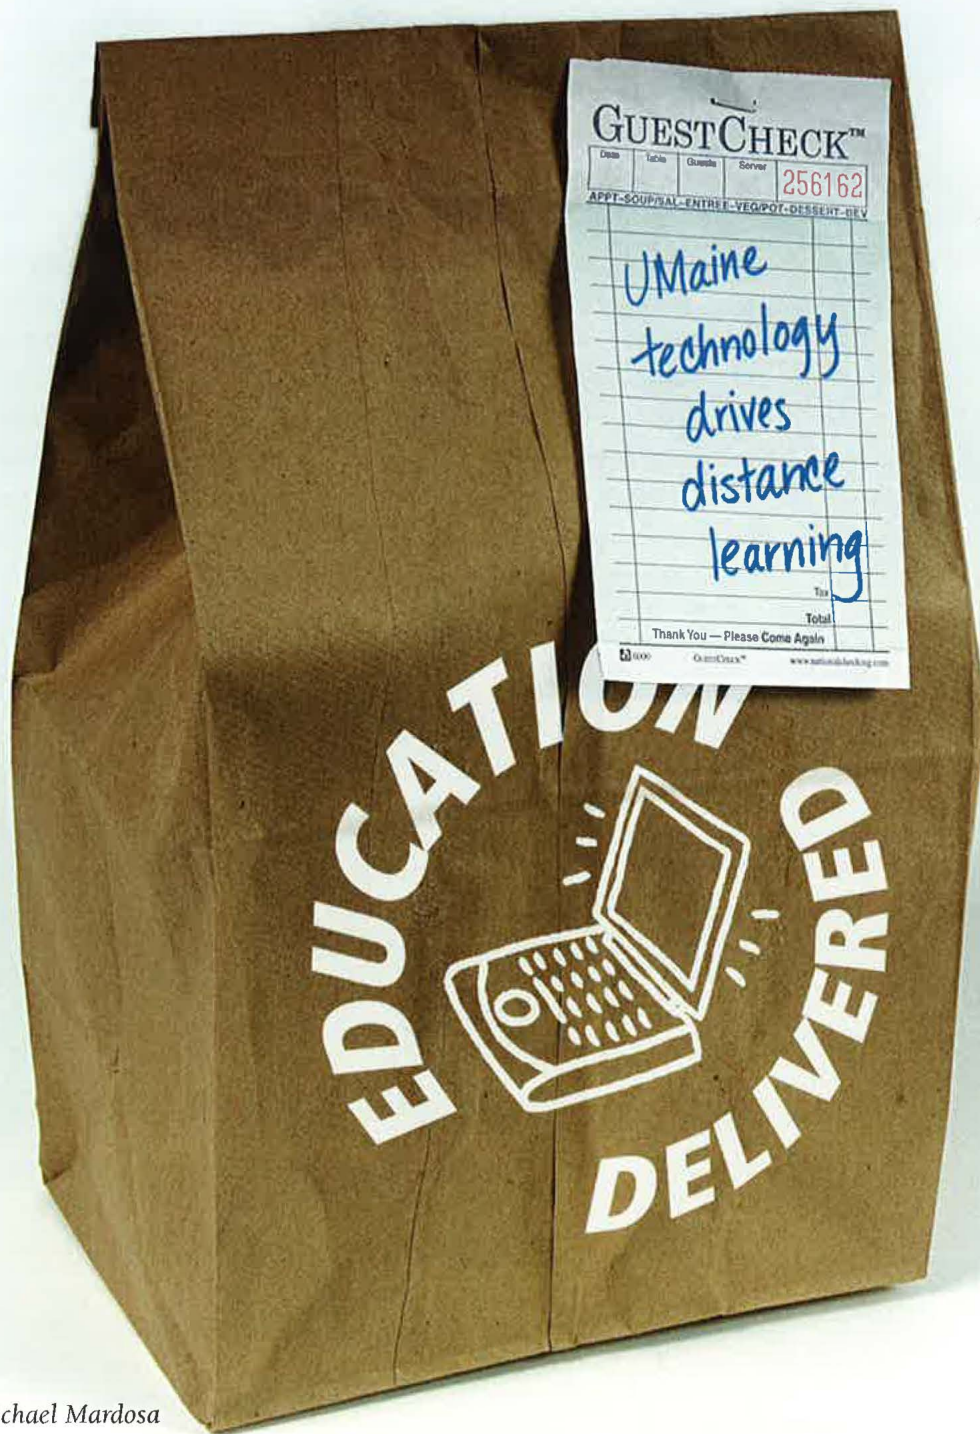 GUESTCHECK™
Date Table Guests Server 256162
APPT-SOUP/SAL-ENTREE-VEG/POT-DESSERT-BEV
UMaine
technology
drives
distance
learning
Tax
Total
Thank You — Please Come Again
6000 GUESTCHECK™ www.nationalchecking.com
EDUCATION
DELIVERED
chael Mardosa